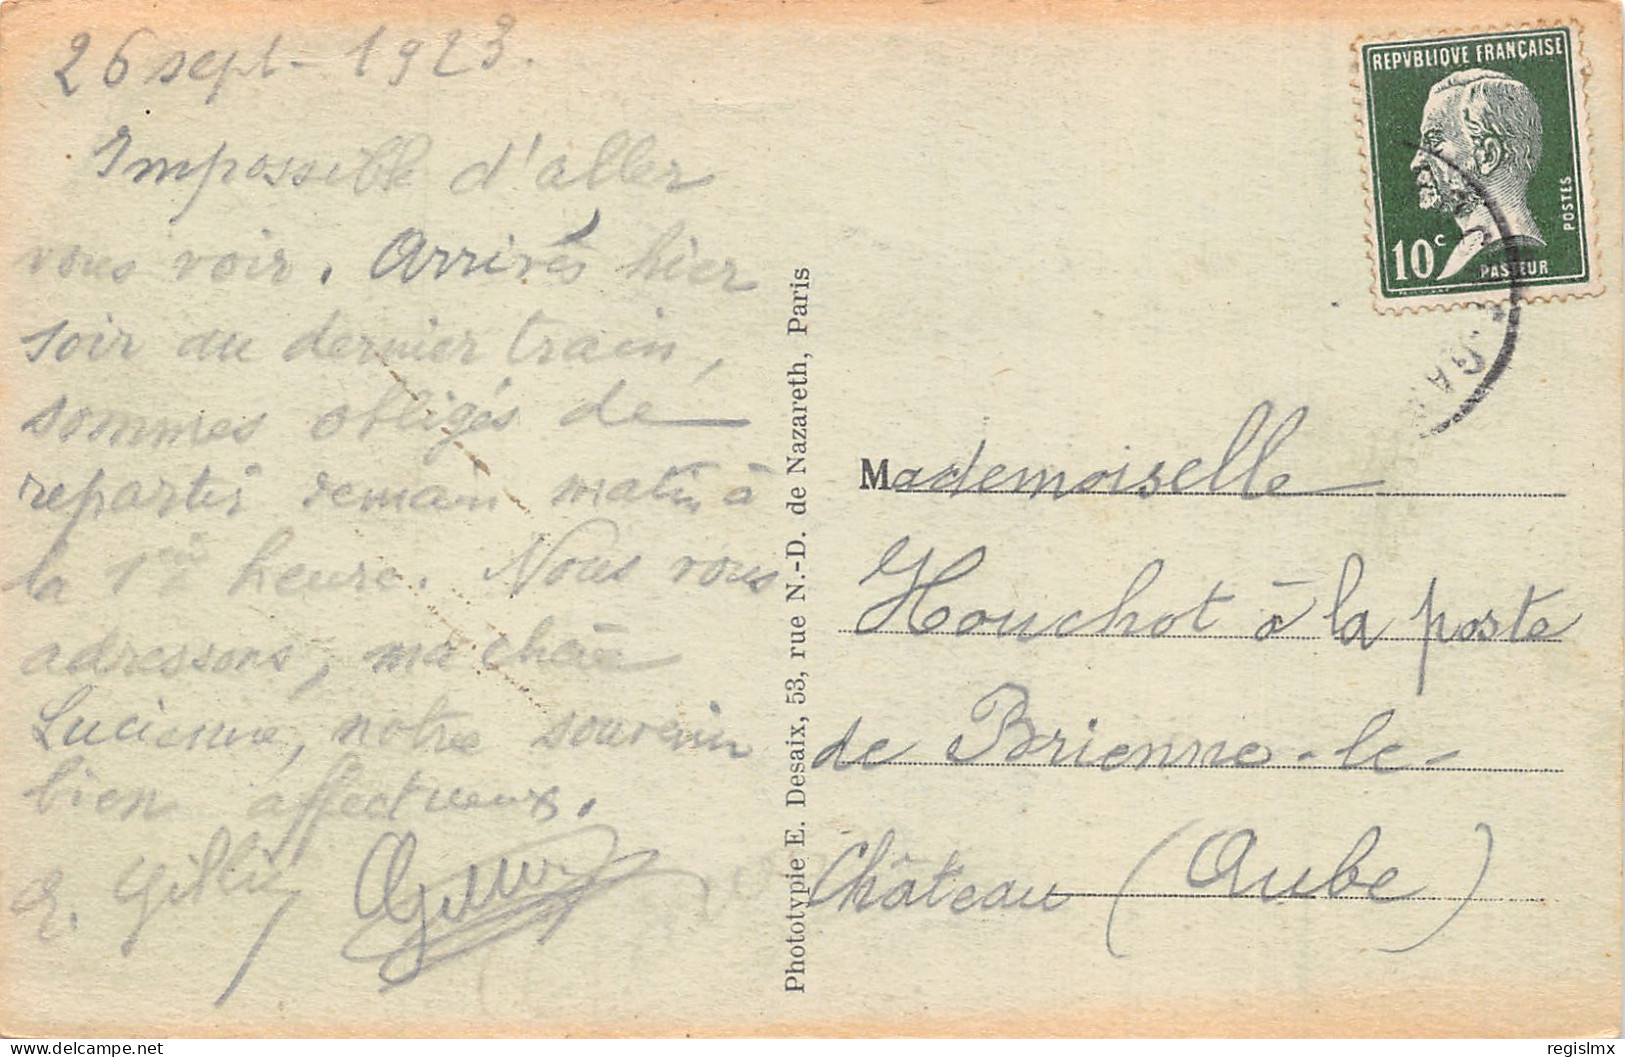 26 sept- 1923.
Impossible d'aller
vous voir. Arrivés hier
soir au dernier train,
sommes obligés de
repartir demain matin à
la 1ère heure. Nous vous
adressons, ma chère
Lucienne, notre souvenir
bien affectueux.
Phototypie E. Desaix, 53, rue N.-D. de Nazareth, Paris
REPVBLIQVE FRANÇAISE
POSTES
10c
PASTEUR
Mademoiselle
Houchot à la poste
de Brienne-le-
Château (Aube)
regislmx